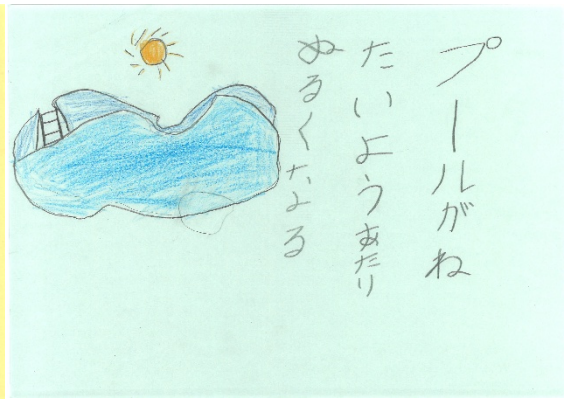 プールがね
たいようあたり
ぬるくなる